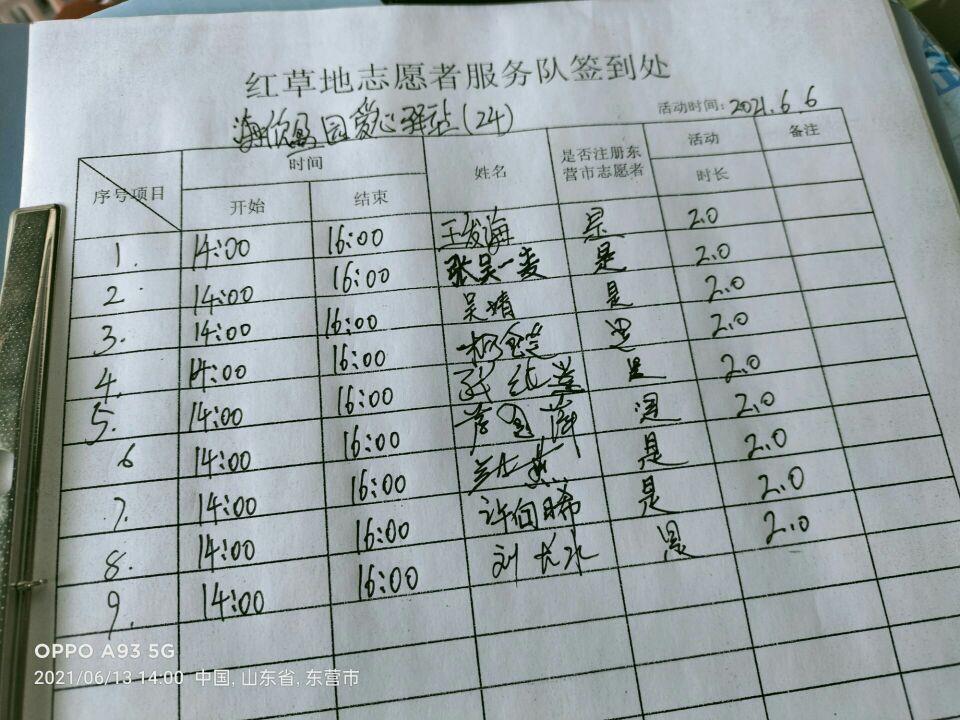 红草地志愿者服务队签到处
海欣园爱心驿站(24)
活动时间: 2021.6.6
序号 项目 时间 姓名 是否注册东营市志愿者 活动时长 备注
开始 结束
1. 14:00 16:00 王发海 是 2.0
2. 14:00 16:00 张吴一麦 是 2.0
3. 14:00 16:00 吴靖 是 2.0
4. 14:00 16:00 是 2.0
5. 14:00 16:00 是 2.0
6 14:00 16:00 是 2.0
7. 14:00 16:00 是 2.0
8. 14:00 16:00 许伯晞 是 2.0
9. 14:00 16:00 刘长水 是 2.0
OPPO A93 5G
2021/06/13 14:00 中国, 山东省, 东营市